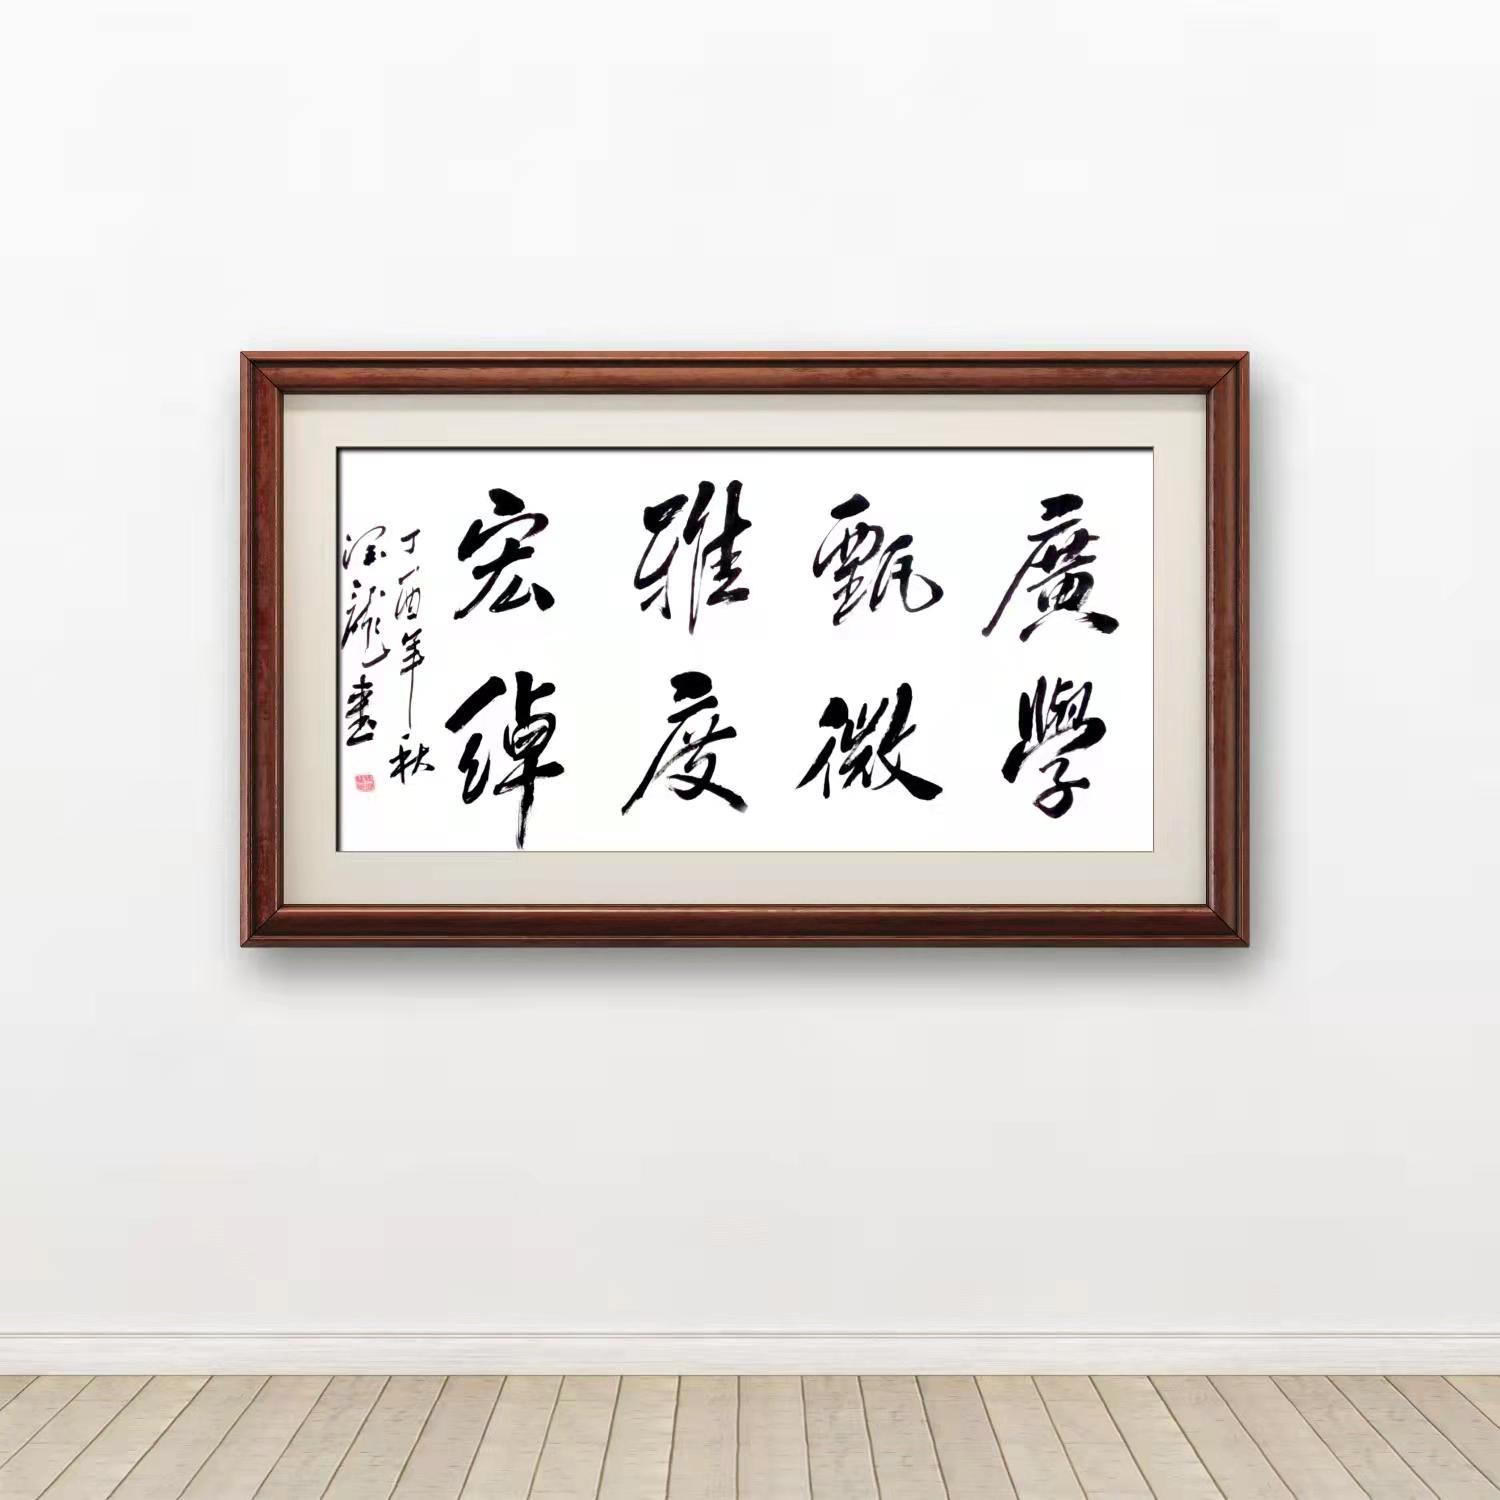 廣學
甄微
雅度
宏綽
丁酉年秋
龍書